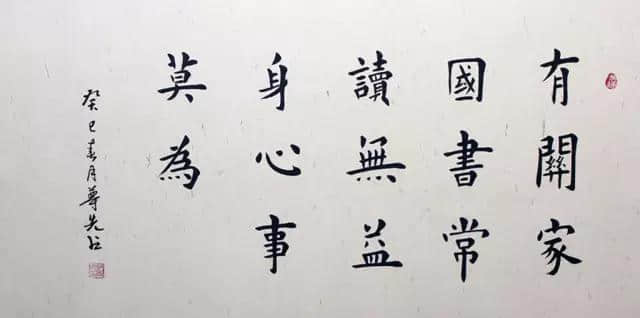 有關家
國書常
讀無益
身心事
莫為
癸巳春月尊先